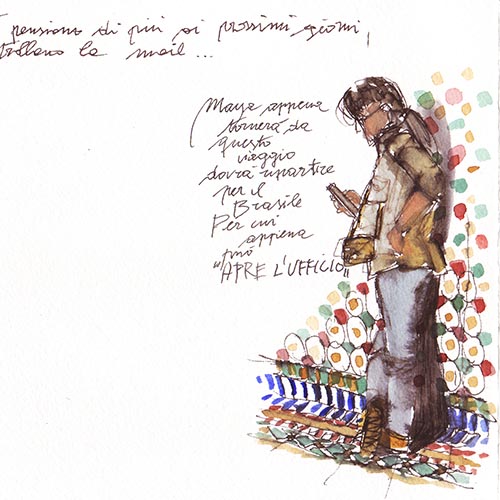 pensiono di più ai prossimi giorni,
la mail...
Maya appena
tornerà da
questo
viaggio
dovrà ripartire
per il
Brasile
Per cui
appena
può
"APRE L'UFFICIO"